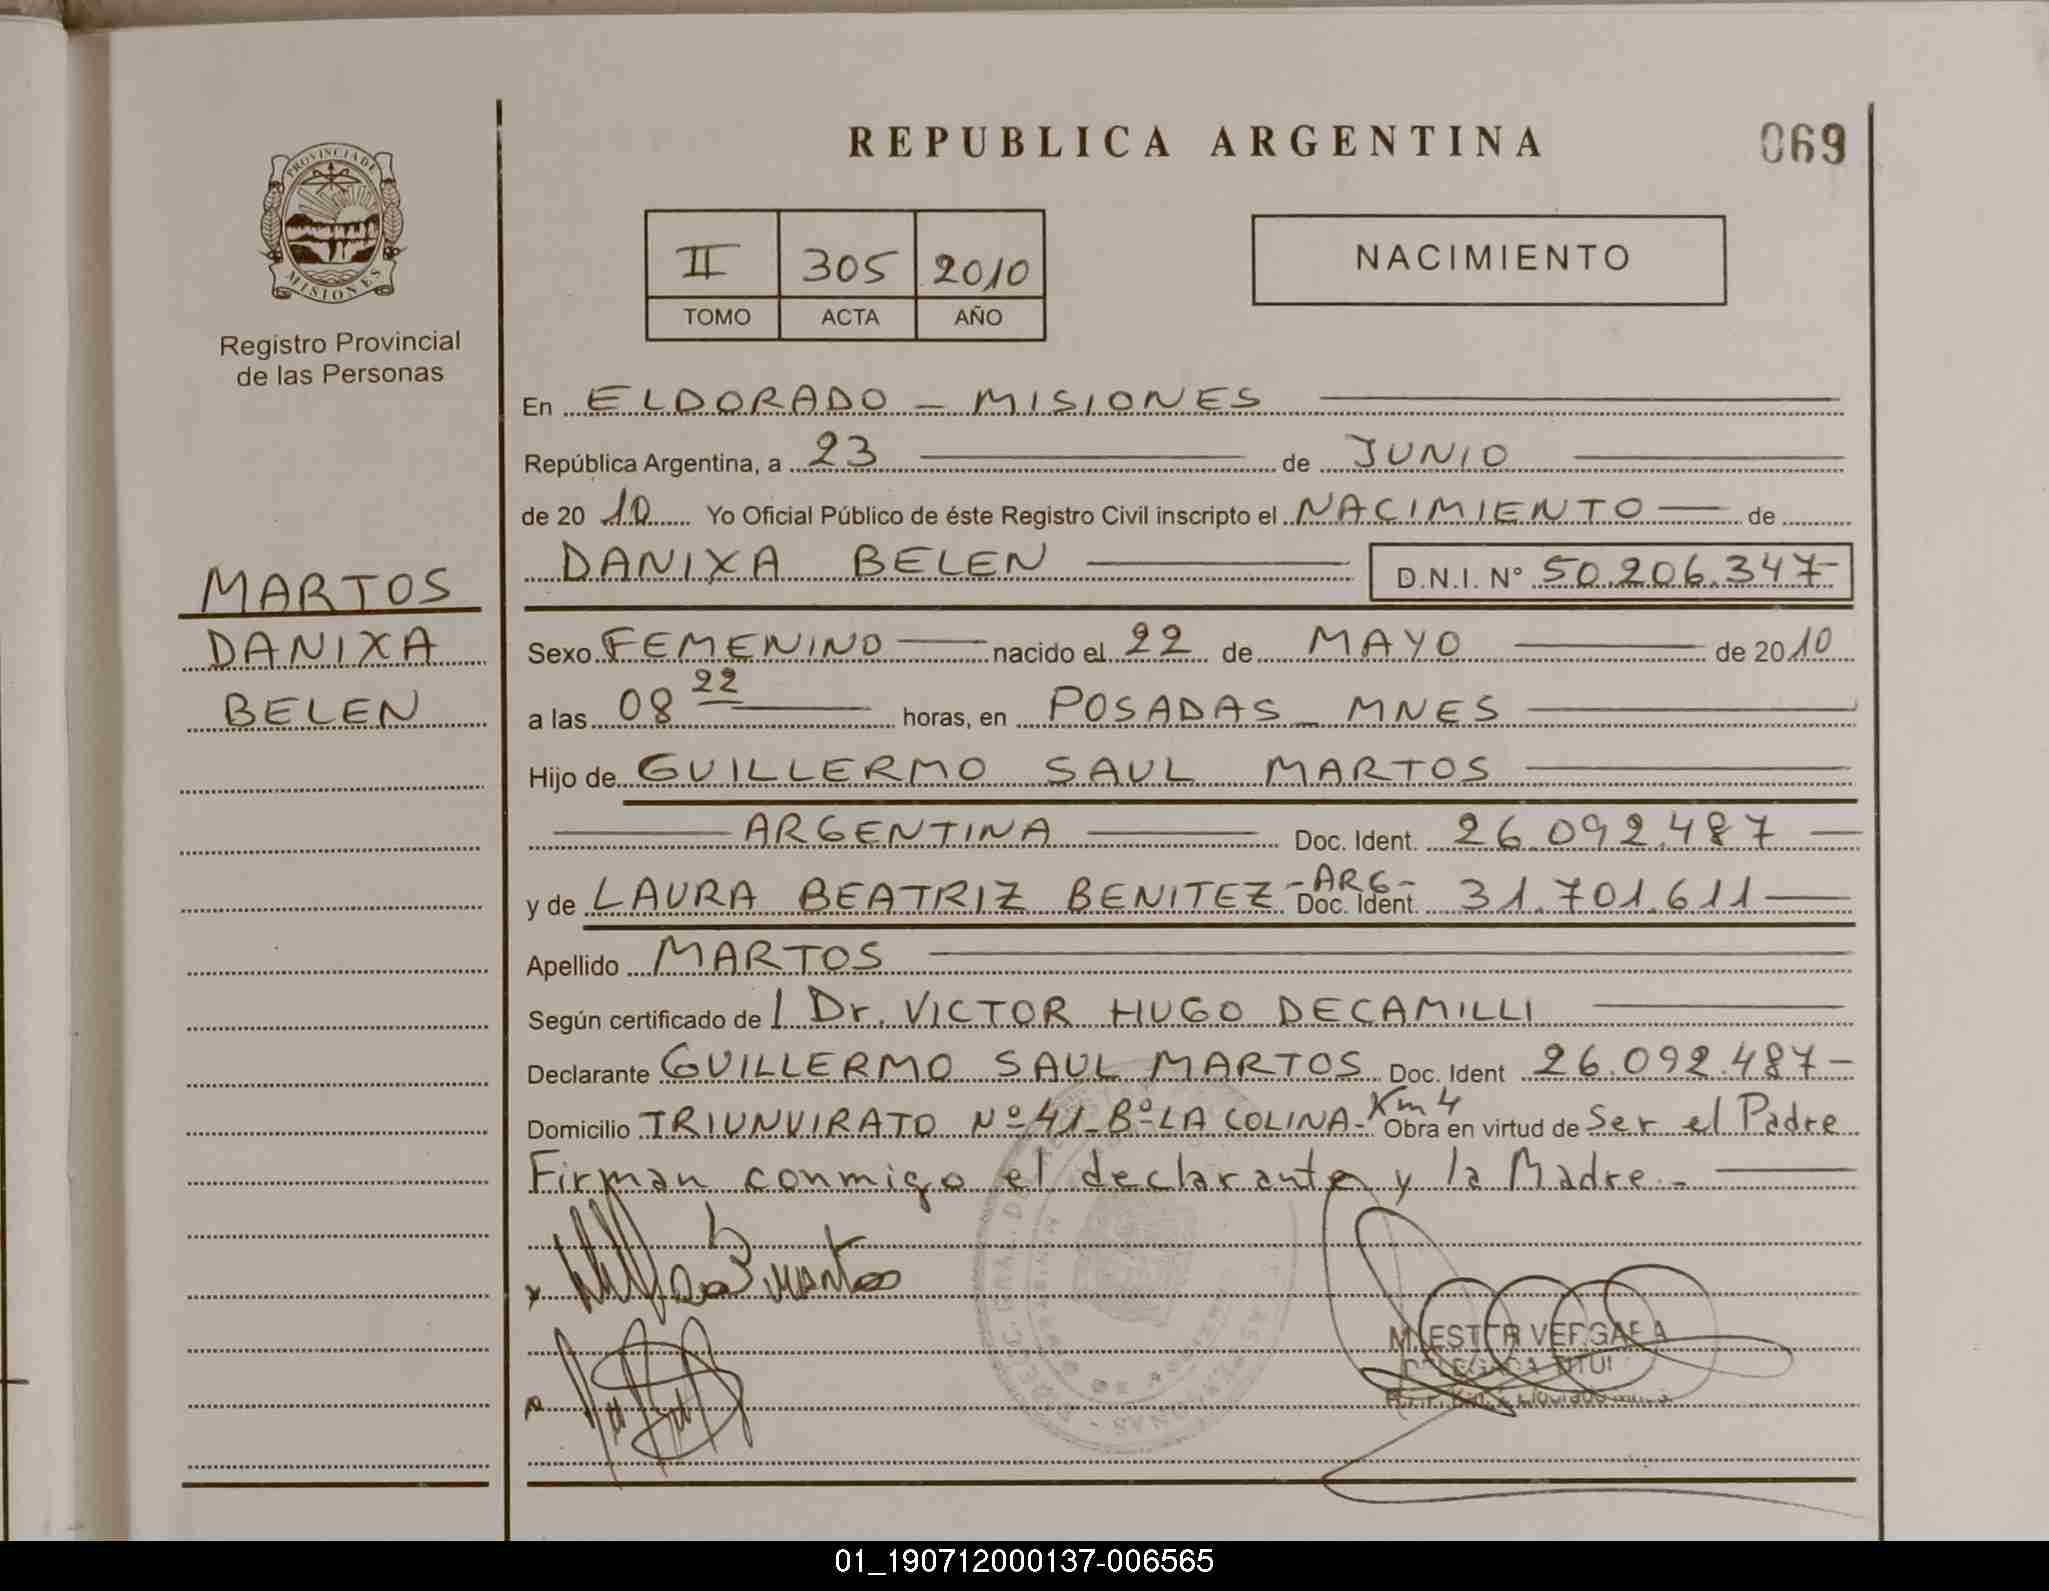 REPUBLICA ARGENTINA
069
PROVINCIA DE
MISIONES
Registro Provincial
de las Personas
II 305 2010
TOMO ACTA AÑO
NACIMIENTO
MARTOS
DANIXA
BELEN
En ELDORADO - MISIONES
República Argentina, a 23 de JUNIO
de 2010 Yo Oficial Público de éste Registro Civil inscripto el NACIMIENTO de
DANIXA BELEN D.N.I. Nº 50.206.347-
Sexo FEMENINO nacido el 22 de MAYO de 2010
a las 08 22 horas, en POSADAS - MNES
Hijo de GUILLERMO SAUL MARTOS
ARGENTINA Doc. Ident. 26.092.487
y de LAURA BEATRIZ BENITEZ -ARG- Doc. Ident. 31.701.611
Apellido MARTOS
Según certificado de l Dr. VICTOR HUGO DECAMILLI
Declarante GUILLERMO SAUL MARTOS Doc. Ident 26.092.487-
Domicilio TRIUNVIRATO Nº 41-Bº LA COLINA- Km 4 Obra en virtud de Ser el Padre
Firman conmigo el declarante y la Madre.-
M. ESTER VERGARA
01_190712000137-006565